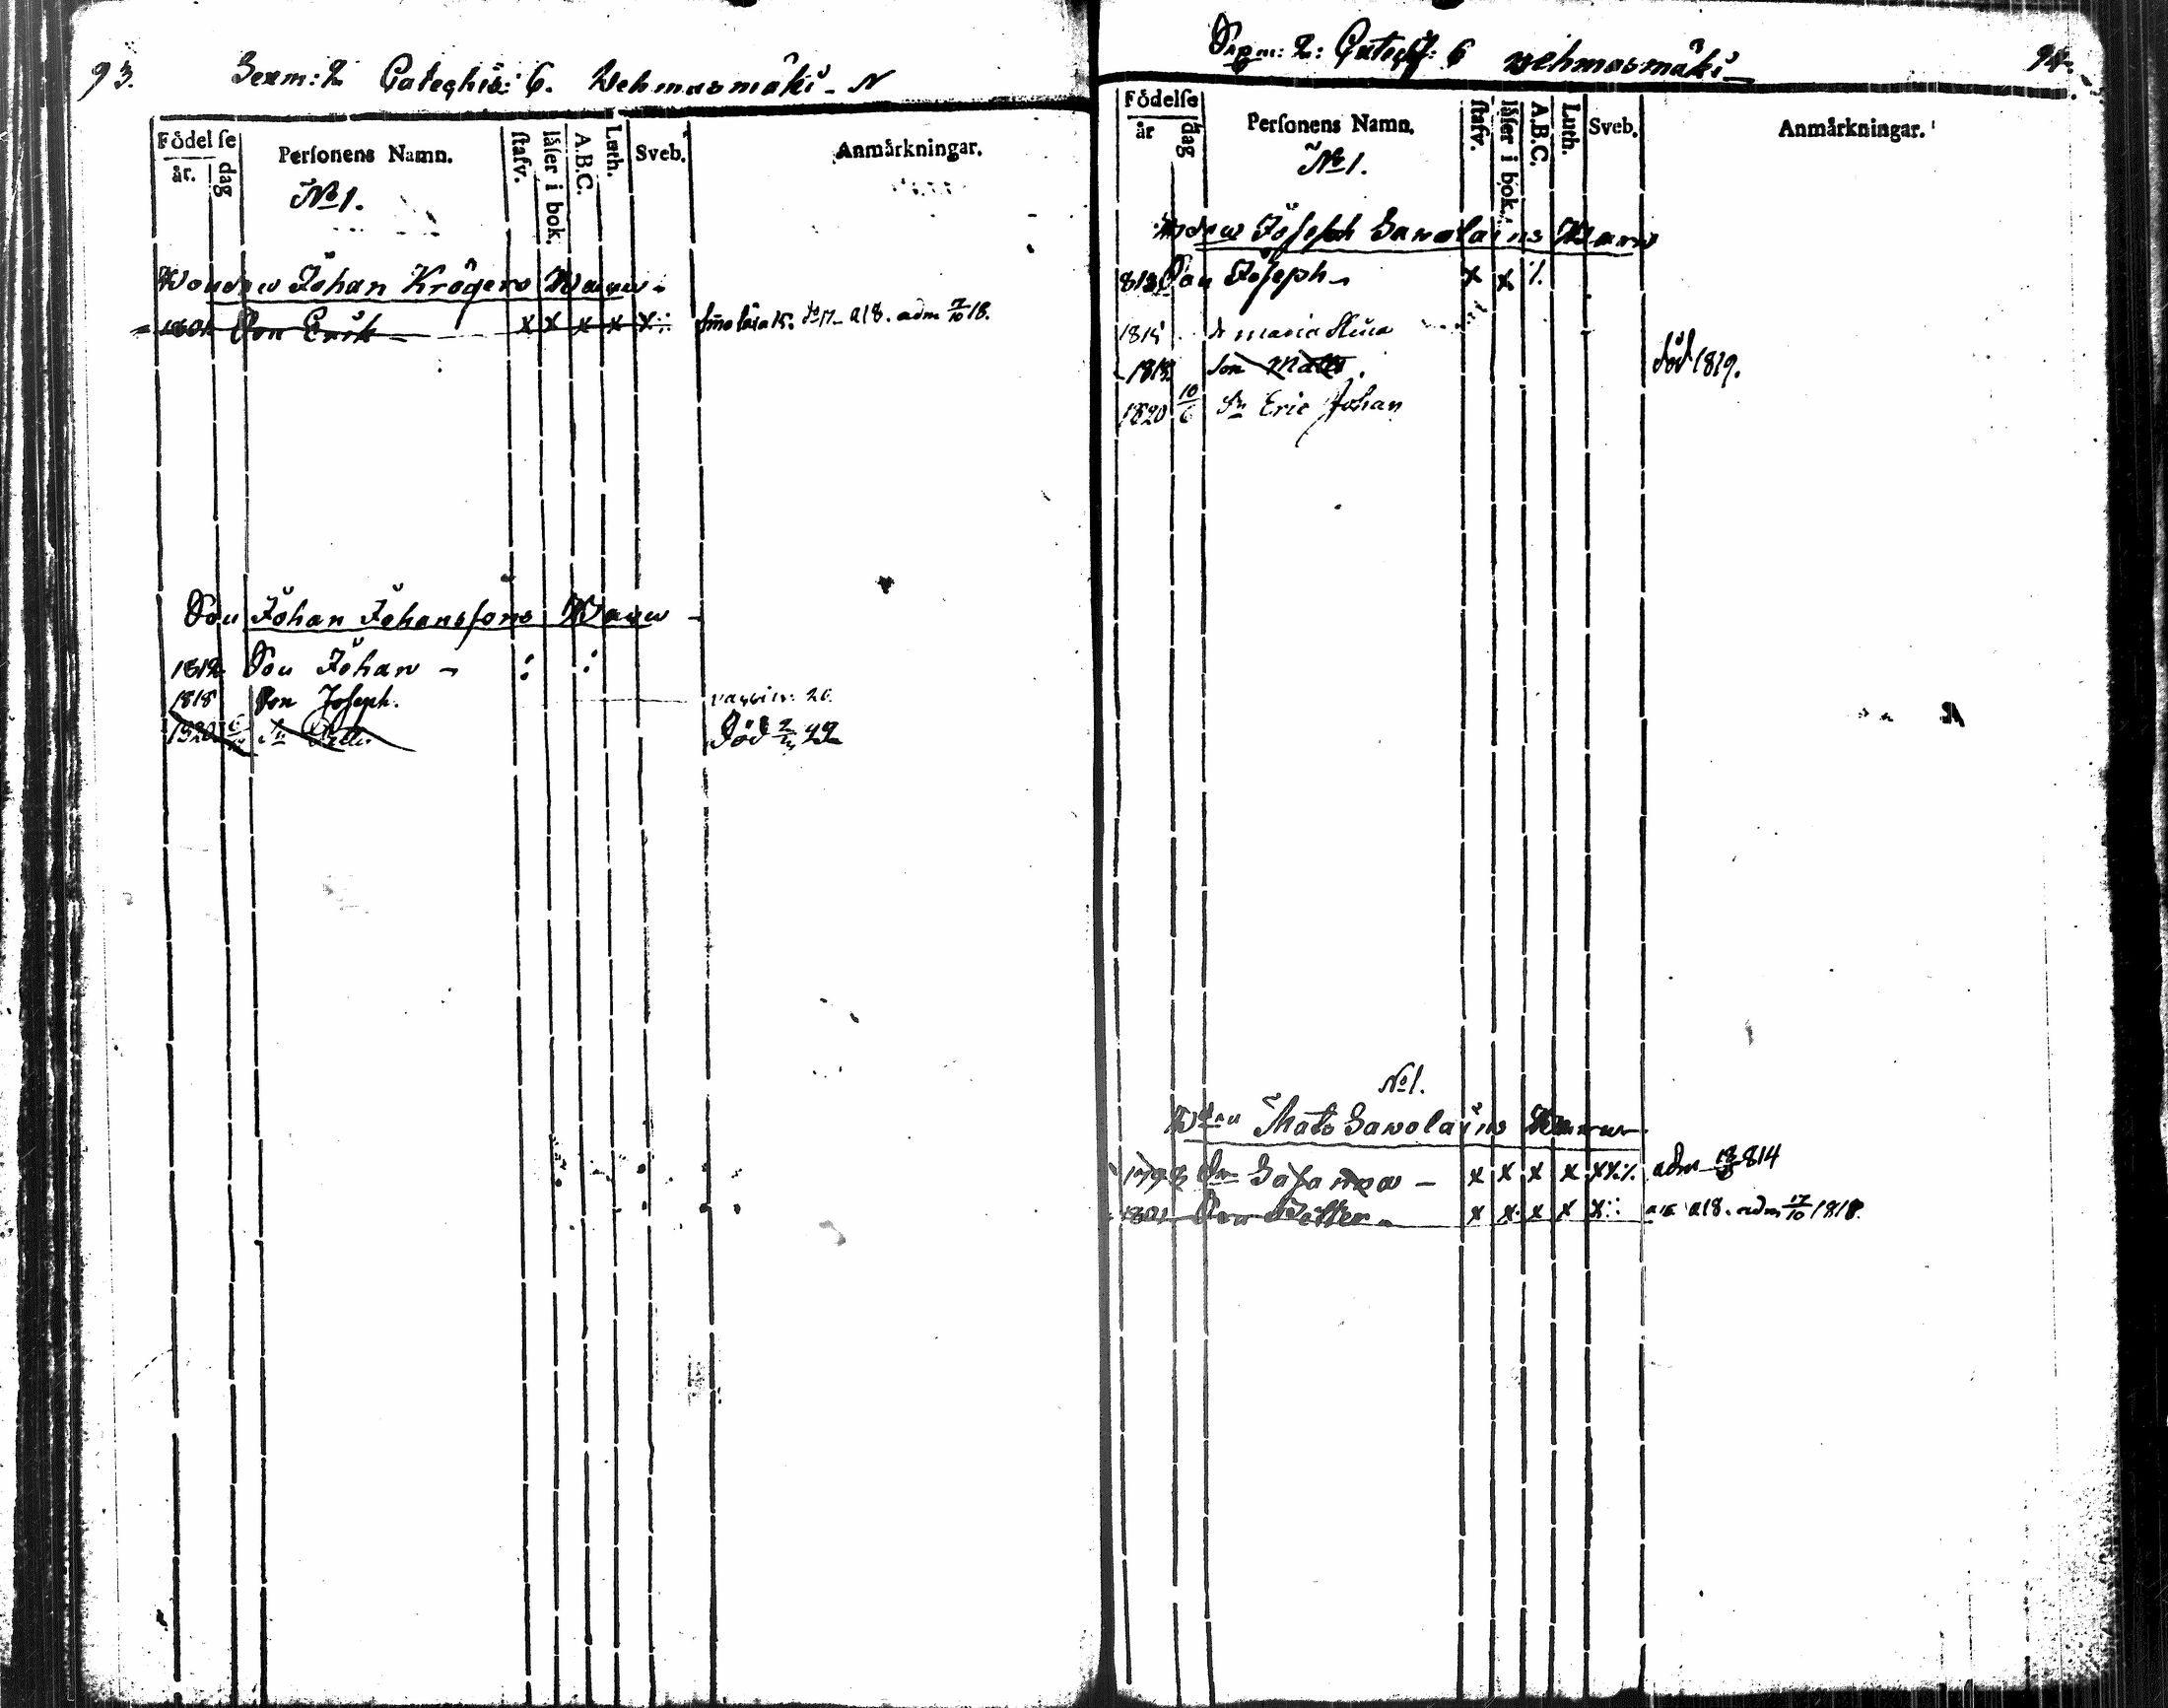 93. Sexm: 2 Categhis: 6. Wehmasmäki - N
Födelse
år. dag Personens Namn. stafv. läser i bok. A.B.C. Luth. Sveb. Anmärkningar.
No 1.
Johan Krögers Barn -
1801 Son Erik - x x x x x a18. adm 7/10 18.
Son Johan Johanssons Barn -
1812 Son Johan -
1818 Son Joseph. vaccin: 20.
1820 Sn Petter Död 22
Sexm: 2: Catech: 6 Wehmasmäki - 94.
Födelse
år dag Personens Namn. stafv. läser i bok. A.B.C. Luth. Sveb. Anmärkningar.
No 1.
Joseph Sawolains Barn
813 Son Joseph - x x ⁒
1815 dr maria Stina
1818 son Matts. död 1819.
1820 10/6 Sn Eric Johan
No 1.
Mats Sawolains Barn
Susanna - x x x x x adm 814
1801 Son Petter - x x x x x a18. adm 17/10 1818.